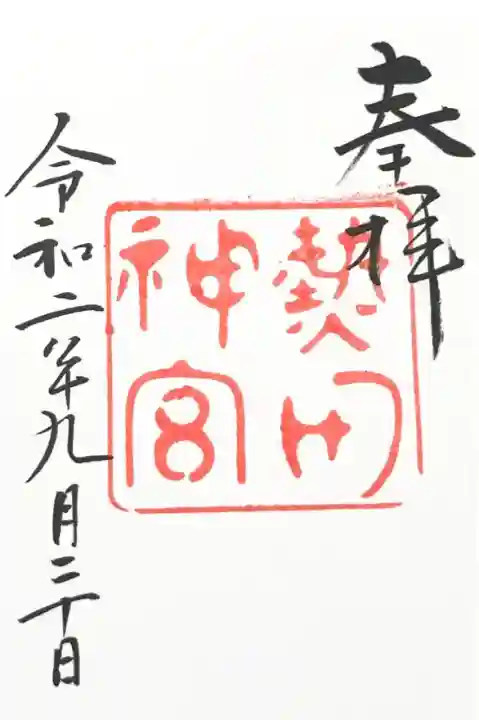 奉拝
熱田
神宮
令和二年九月二十日